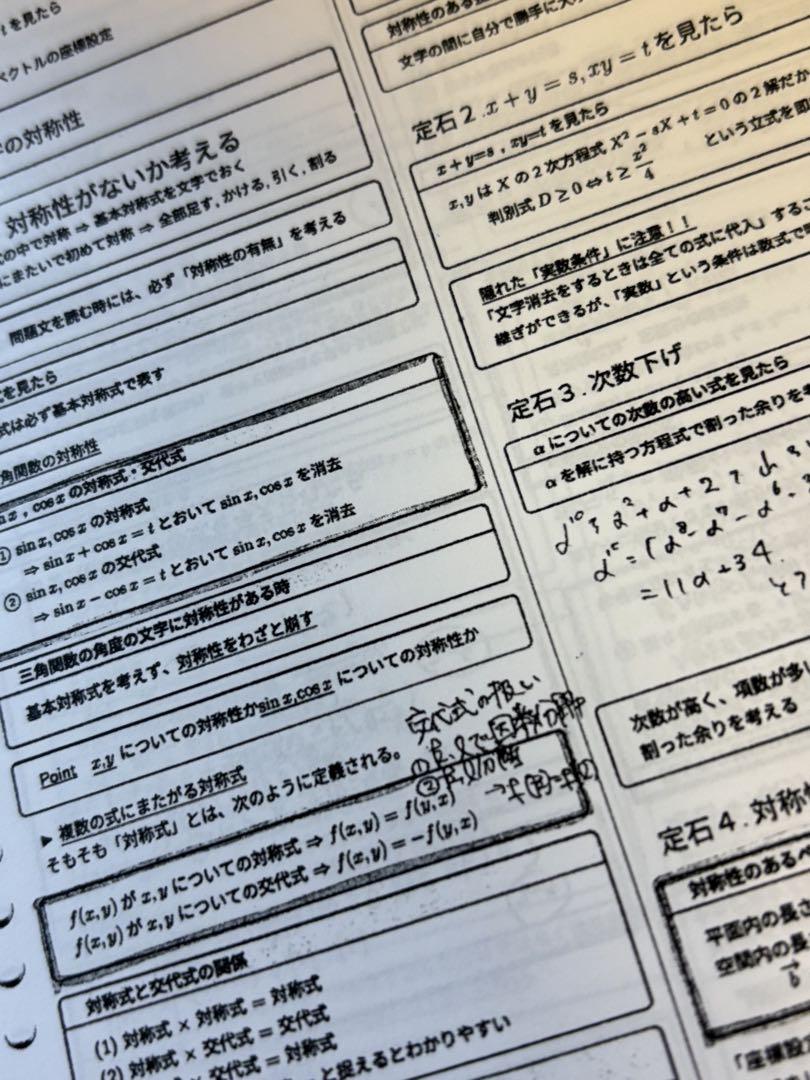 tを見たら
ベクトルの座標設定
の対称性
対称性がないか考える
の中で対称 ⇒ 基本対称式を文字でおく
にまたいで初めて対称 ⇒ 全部足す, かける, 引く, 割る
問題文を読む時には、必ず「対称性の有無」を考える
を見たら
式は必ず基本対称式で表す
角関数の対称性
, cos x の対称式・交代式
① sin x, cos x の対称式
⇒ sin x + cos x = t とおいて sin x, cos x を消去
② sin x, cos x の交代式
⇒ sin x − cos x = t とおいて sin x, cos x を消去
三角関数の角度の文字に対称性がある時
基本対称式を考えず、対称性をわざと崩す
Point x,y についての対称性かsin x,cos x についての対称性か
▶ 複数の式にまたがる対称式
そもそも「対称式」とは、次のように定義される。
交代式の扱い
f(x,y) が x,y についての対称式 ⇒ f(x,y) = f(y,x)
f(x,y) が x,y についての交代式 ⇒ f(x,y) = −f(y,x)
対称式と交代式の関係
(1) 対称式 × 対称式 = 対称式
(2) 対称式 × 交代式 = 交代式
交代式 = 対称式
と捉えるとわかりやすい
対称性のある
文字の間に自分で勝手に大
定石2. x + y = s, xy = t を見たら
x+y=s , xy=t を見たら
x, y は X の 2 次方程式 X² − sX + t = 0 の 2 解だか
という立式を即
判別式 D ≥ 0 ⇔ t ≥ x²/4
隠れた「実数条件」に注意！！
「文字消去をするときは全ての式に代入」するこ
継ぎができるが、「実数」という条件は数式で
定石3. 次数下げ
αについての次数の高い式を見たら
αを解に持つ方程式で割った余りを
= 11α + 34
次数が高く、項数が多い
割った余りを考える
定石4. 対称性
対称性のあるベ
平面内の長さ
空間内の長
b
「座標設